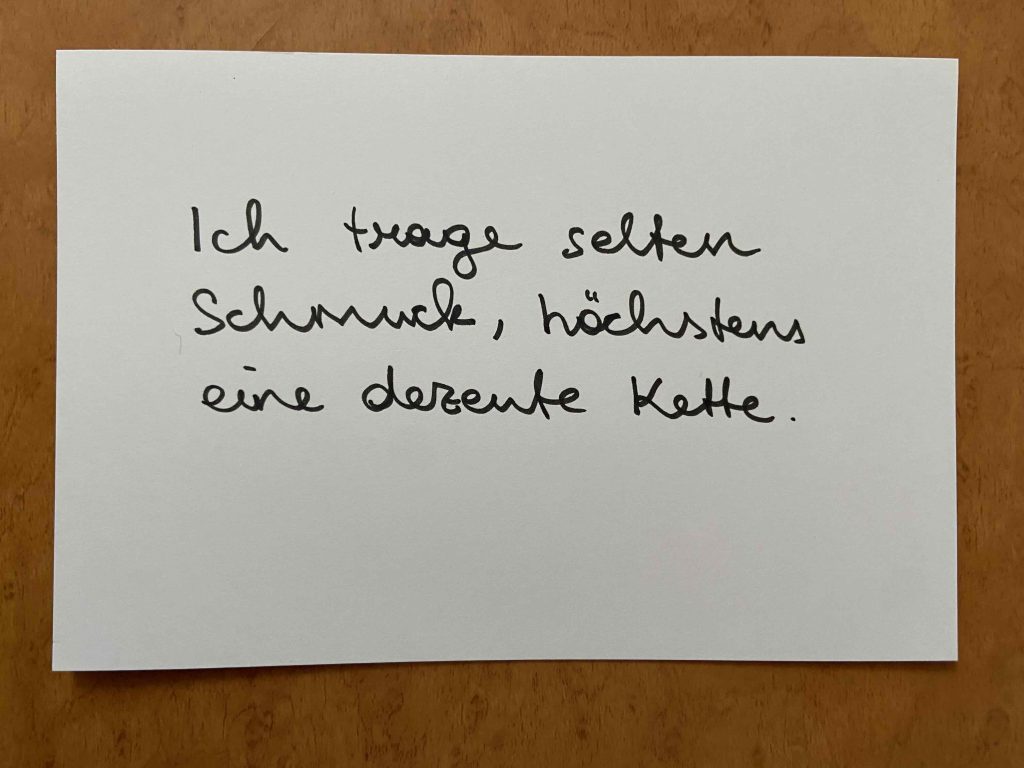 Ich trage selten
Schmuck, höchstens
eine dezente Kette.